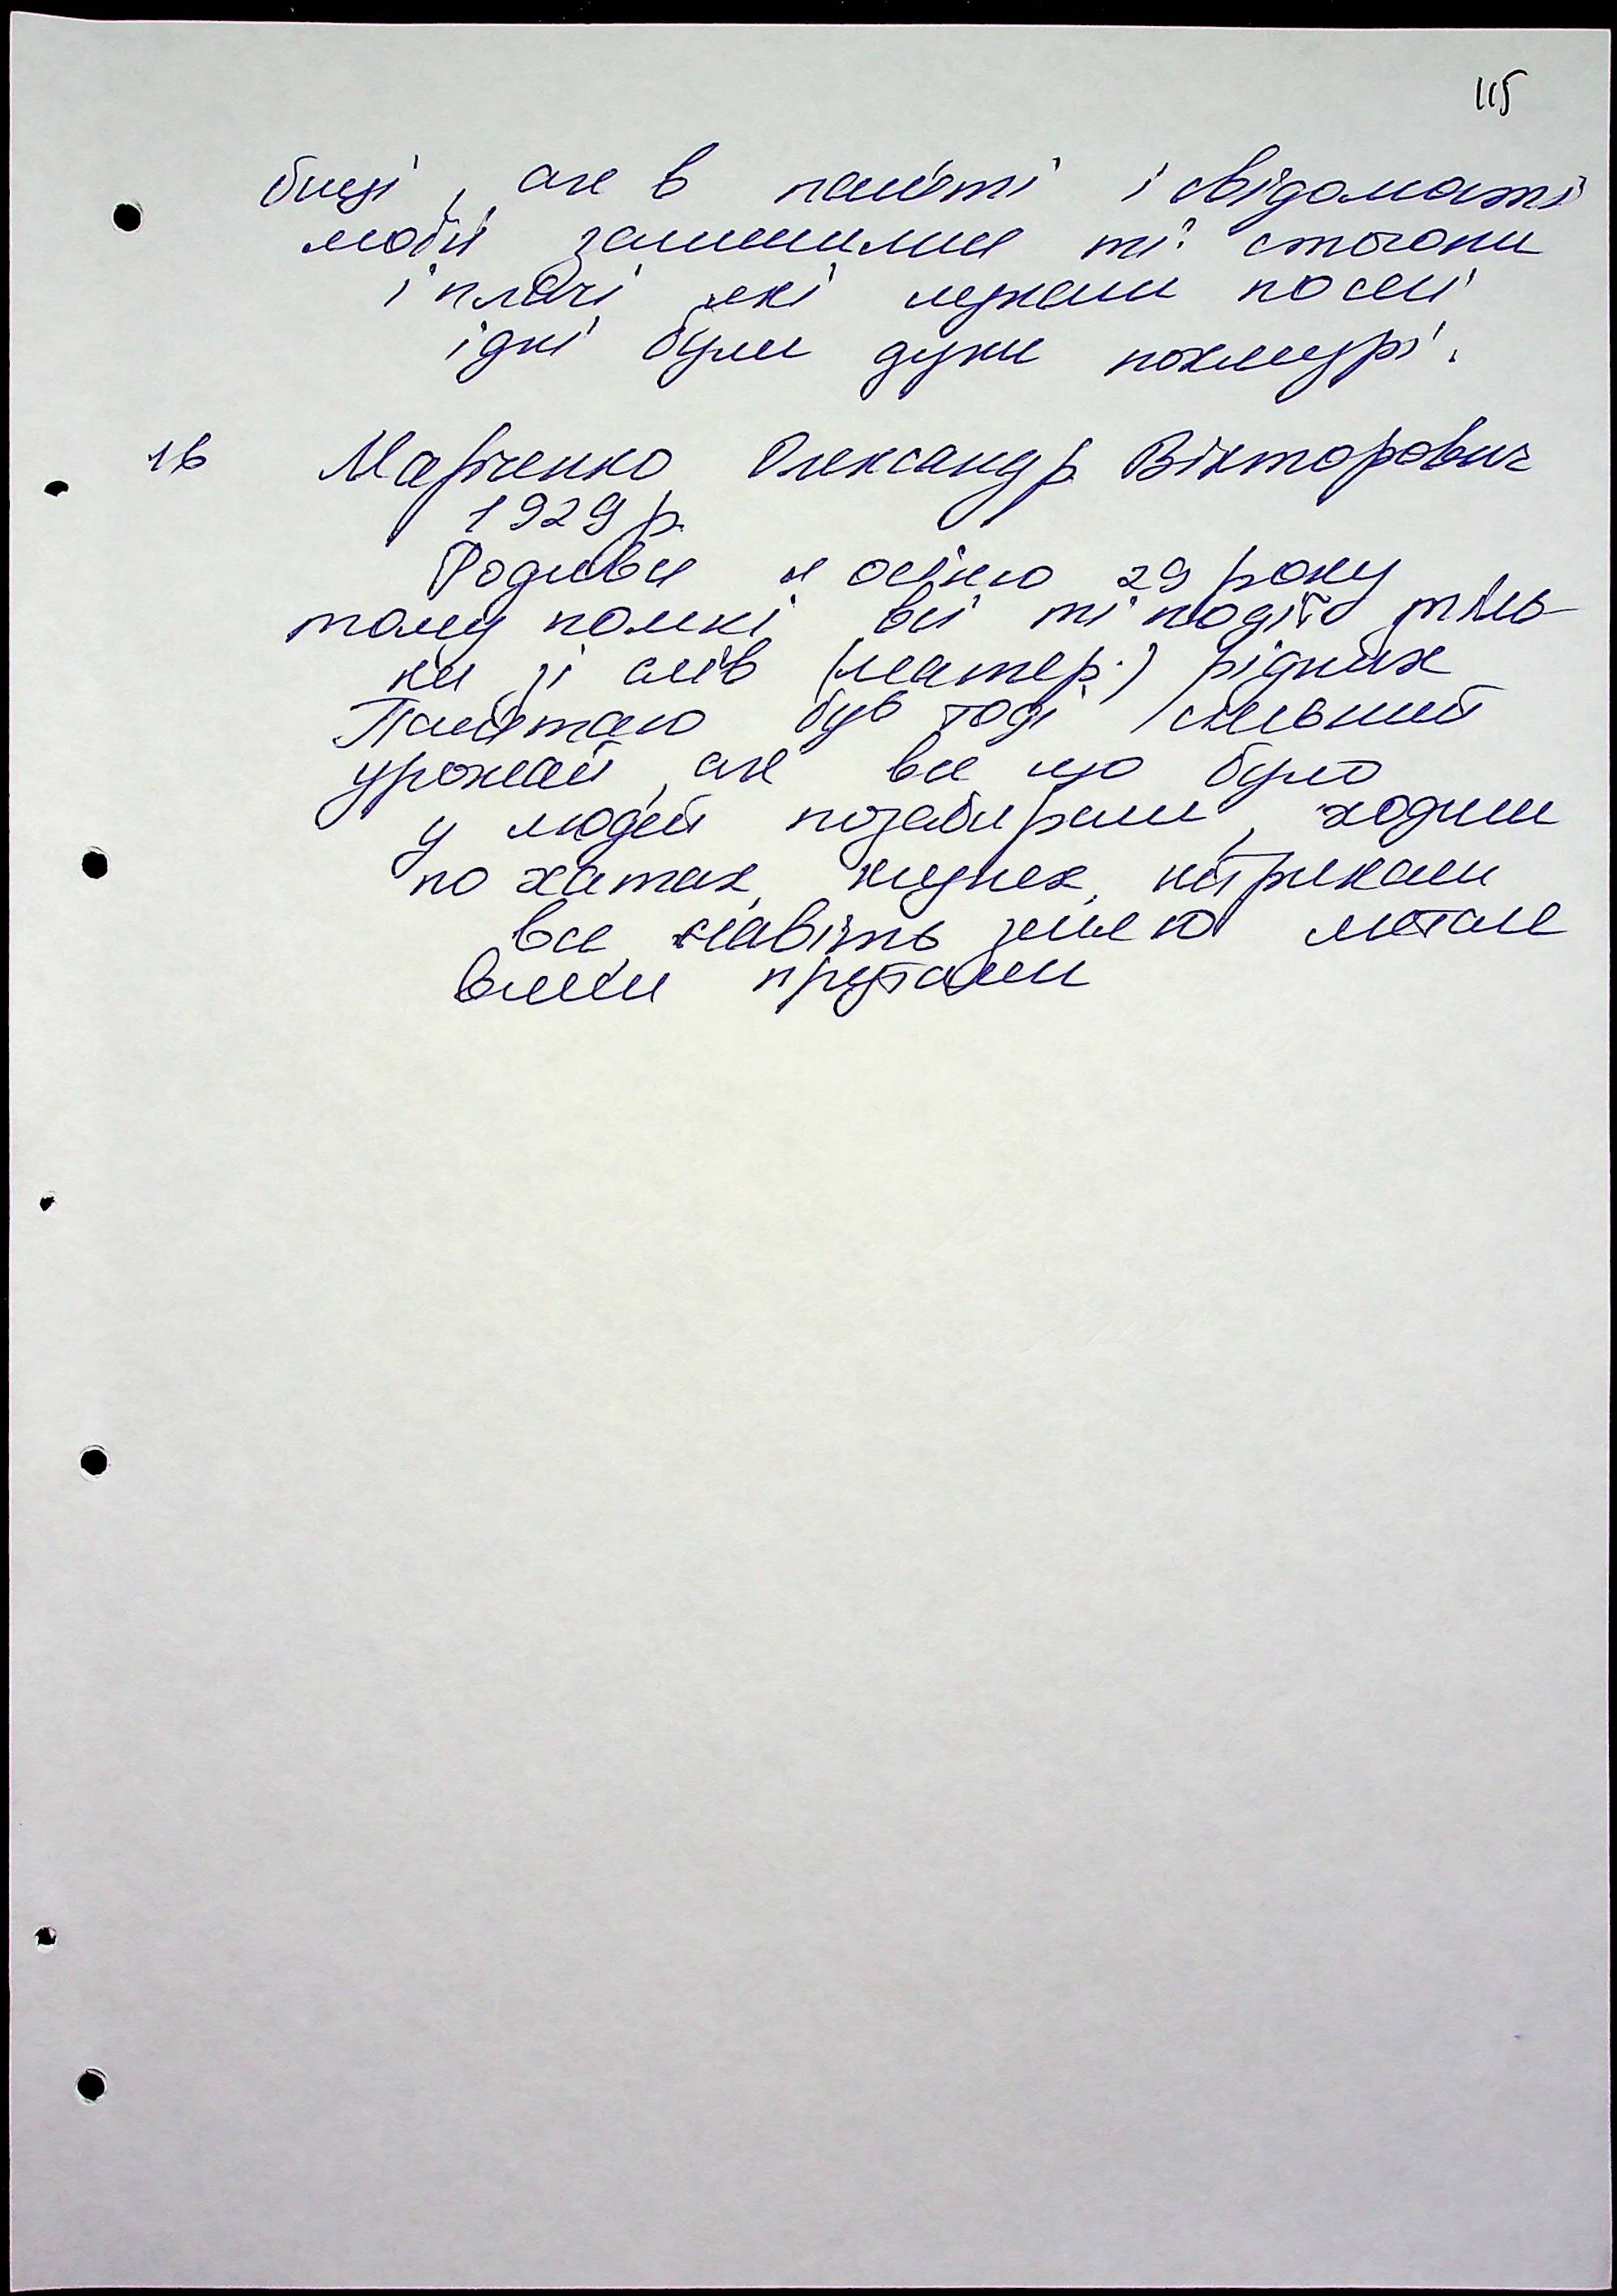 115
биці, але в пам'яті і свідомості
моїй залишились ті стогони
і плачі які лунали по селі
і дні були дуже похмурі.
16 Марченко Олександр Вікторович
1929 р.
Родивсь я осінню 29 року
тому помню всі ті події тіль-
ки зі слів (матер.) рідних
Пам'ятаю був тоді сильний
урожай, але все що було
у людей позабирали, ходили
по хатах, клунях, штрикали
все навіть землю метале
вими прутами